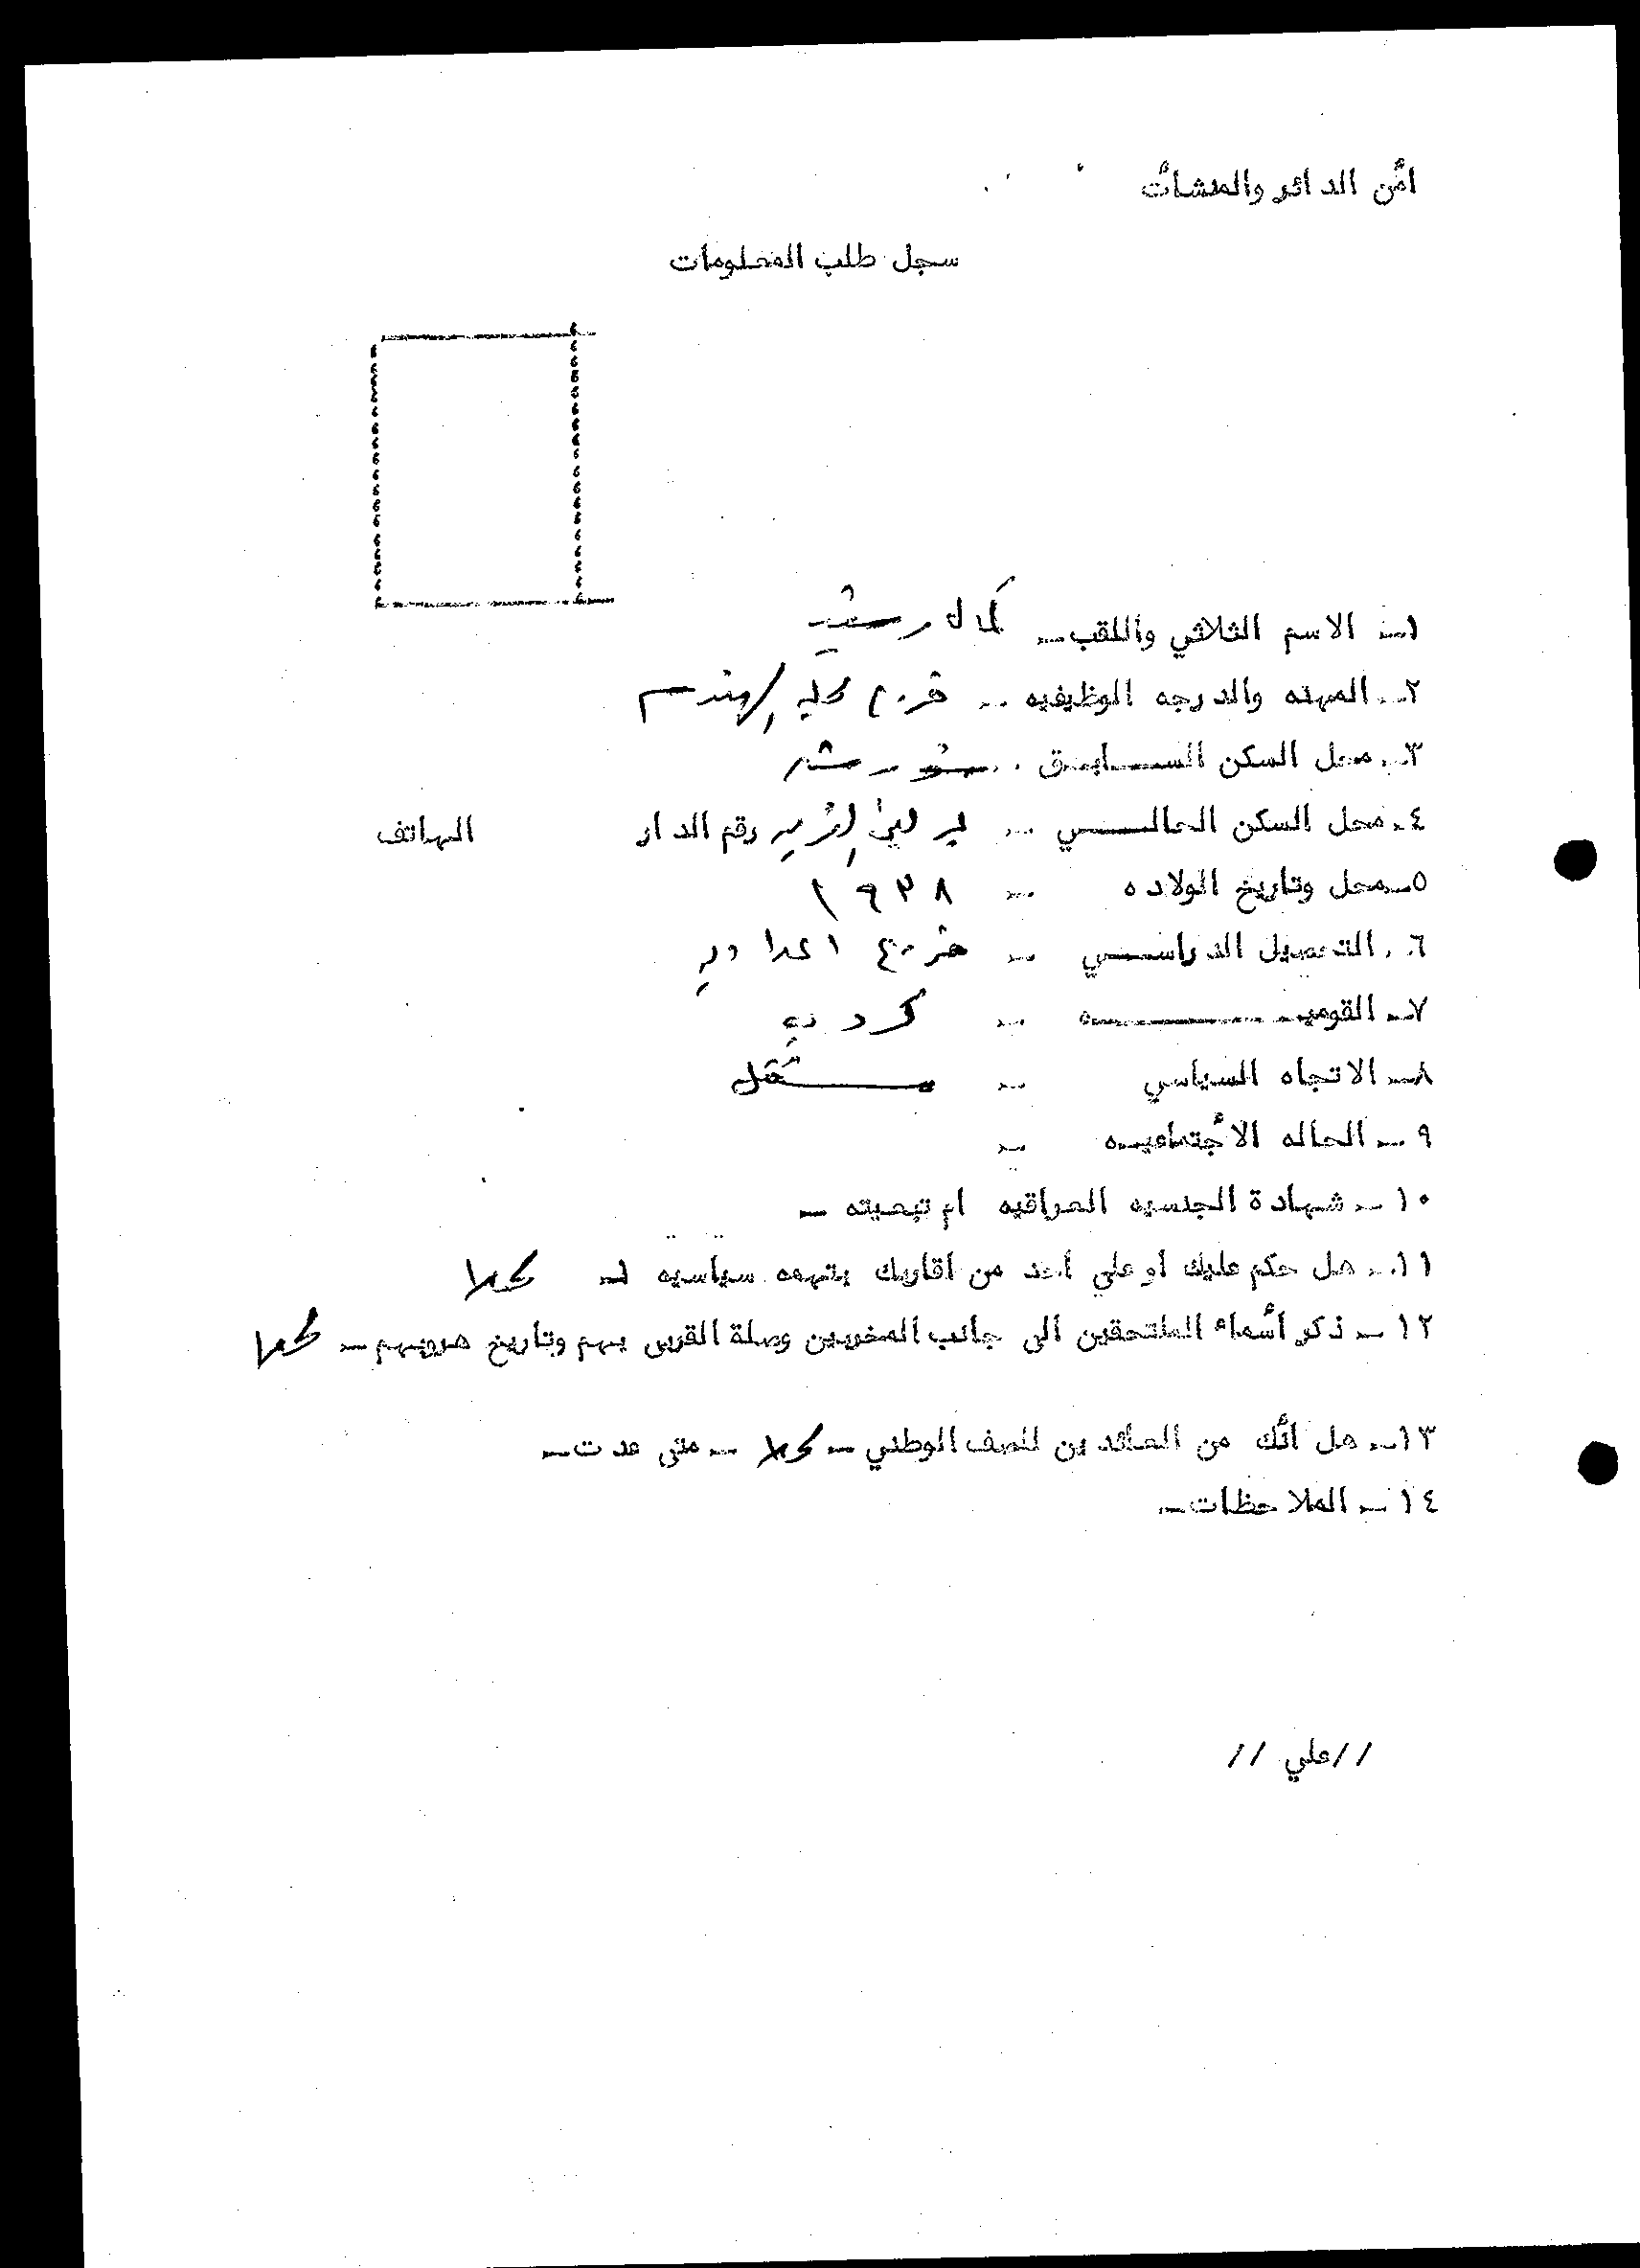 امٔن الدائر والمنشاتٔ
سجل طلب المعلومات
١- الاسم الثلاثي واللقب- كمال رشيد
٢- المهنه والدرجه الوظيفيه - خريج كلية الهندسة
٣- محل السكن الســـابق -
٤- محل السكن الحالـــي - رقم الدار الهاتف
٥- محل وتاريخ الولاده - ١٩٣٨
٦- التحصيل الدراســي - خريج اعدادية
٧- القوميــــــــه - كردي
٨- الاتجاه السياسي - مستقل
٩- الحاله الأجتماعيــه -
١٠- شهادة الجنسيه العراقيه ام تبعيته -
١١- هل حكم عليك او علي احد من اقاربك بتهمه سياسيه - كلا
١٢- ذكر أسٔماء الملتحقين الى جانب المخربين وصلة القربى بهم وتاريخ هروبهم - كلا
١٣- هل أنٔك من العائدين للصف الوطني - كلا - متى عدت-
١٤- الملاحظات-
//علي //